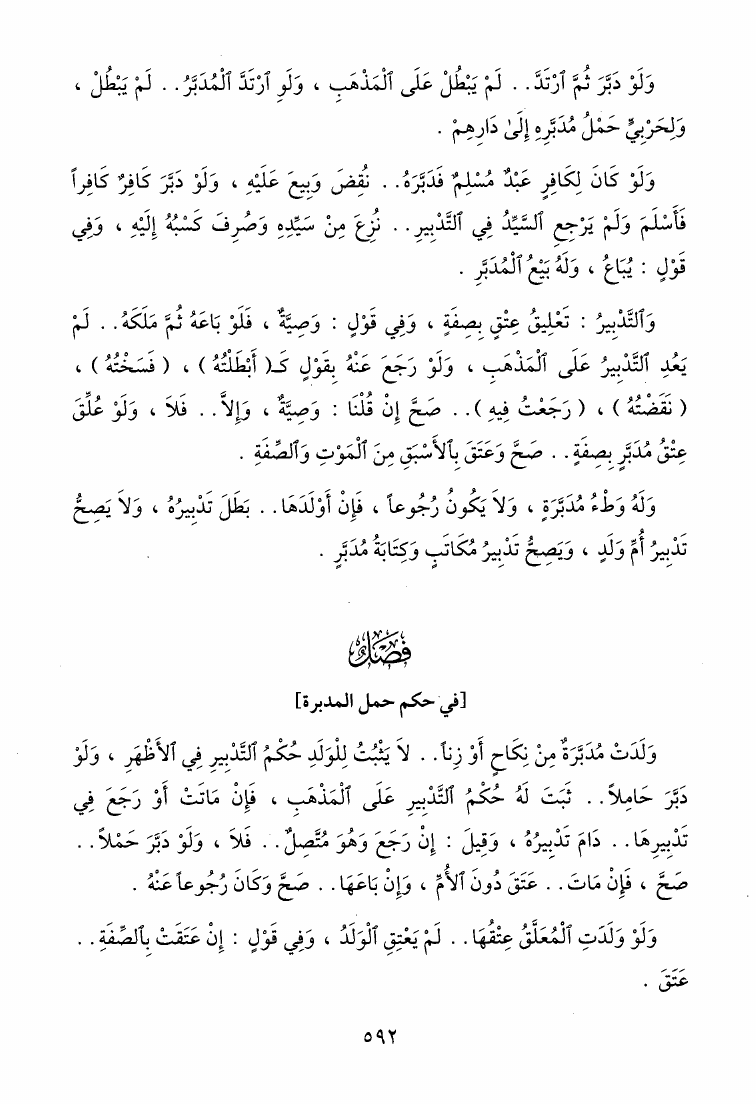 وَلَوْ دَبَّرَ ثُمَّ ٱرْتَدَّ.. لَمْ يَبْطُلْ عَلَى ٱلْمَذْهَبِ ، وَلَوِ ٱرْتَدَّ ٱلْمُدَبَّرُ.. لَمْ يَبْطُلْ ،
وَلِحَرْبِيٍّ حَمْلُ مُدَبَّرِهِ إِلَىٰ دَارِهِمْ .
وَلَوْ كَانَ لِكَافِرٍ عَبْدٌ مُسْلِمٌ فَدَبَّرَهُ.. نُقِضَ وَبِيعَ عَلَيْهِ ، وَلَوْ دَبَّرَ كَافِرٌ كَافِراً
فَأَسْلَمَ وَلَمْ يَرْجِعِ ٱلسَّيِّدُ فِي ٱلتَّدْبِيرِ.. نُزِعَ مِنْ سَيِّدِهِ وَصُرِفَ كَسْبُهُ إِلَيْهِ ، وَفِي
قَوْلٍ : يُبَاعُ ، وَلَهُ بَيْعُ ٱلْمُدَبَّرِ .
وَٱلتَّدْبِيرُ : تَعْلِيقُ عِتْقٍ بِصِفَةٍ ، وَفِي قَوْلٍ : وَصِيَّةٌ ، فَلَوْ بَاعَهُ ثُمَّ مَلَكَهُ.. لَمْ
يَعُدِ ٱلتَّدْبِيرُ عَلَى ٱلْمَذْهَبِ ، وَلَوْ رَجَعَ عَنْهُ بِقَوْلٍ كَـ( أَبْطَلْتُهُ ) ، ( فَسَخْتُهُ ) ،
( نَقَضْتُهُ ) ، ( رَجَعْتُ فِيهِ ).. صَحَّ إِنْ قُلْنَا : وَصِيَّةٌ ، وَإِلاَّ.. فَلاَ ، وَلَوْ عُلِّقَ
عِتْقُ مُدَبَّرٍ بِصِفَةٍ.. صَحَّ وَعَتَقَ بِٱلأَسْبَقِ مِنَ ٱلْمَوْتِ وَٱلصِّفَةِ .
وَلَهُ وَطْءُ مُدَبَّرَةٍ ، وَلاَ يَكُونُ رُجُوعاً ، فَإِنْ أَوْلَدَهَا.. بَطَلَ تَدْبِيرُهُ ، وَلاَ يَصِحُّ
تَدْبِيرُ أُمِّ وَلَدٍ ، وَيَصِحُّ تَدْبِيرُ مُكَاتَبٍ وَكِتَابَةُ مُدَبَّرٍ .
فَصْلٌ
[في حكم حمل المدبرة]
وَلَدَتْ مُدَبَّرَةٌ مِنْ نِكَاحٍ أَوْ زِناً.. لاَ يَثْبُتُ لِلْوَلَدِ حُكْمُ ٱلتَّدْبِيرِ فِي ٱلأَظْهَرِ ، وَلَوْ
دَبَّرَ حَامِلاً.. ثَبَتَ لَهُ حُكْمُ ٱلتَّدْبِيرِ عَلَى ٱلْمَذْهَبِ ، فَإِنْ مَاتَتْ أَوْ رَجَعَ فِي
تَدْبِيرِهَا.. دَامَ تَدْبِيرُهُ ، وَقِيلَ : إِنْ رَجَعَ وَهُوَ مُتَّصِلٌ.. فَلاَ ، وَلَوْ دَبَّرَ حَمْلاً..
صَحَّ ، فَإِنْ مَاتَ.. عَتَقَ دُونَ ٱلأُمِّ ، وَإِنْ بَاعَهَا.. صَحَّ وَكَانَ رُجُوعاً عَنْهُ .
وَلَوْ وَلَدَتِ ٱلْمُعَلَّقُ عِتْقُهَا.. لَمْ يَعْتِقِ ٱلْوَلَدُ ، وَفِي قَوْلٍ : إِنْ عَتَقَتْ بِٱلصِّفَةِ..
عَتَقَ .
٥٩٢